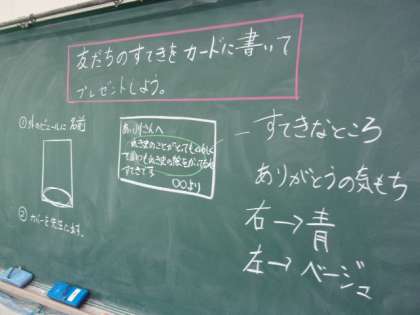 友だちのすてきをカードに書いて
プレゼントしよう。
①外のビニールに名前
②カバーを先生に出す。
あいりさんへ
すてきです
○○より
すてきなところ
ありがとうの気もち
右→青
左→ベージュ